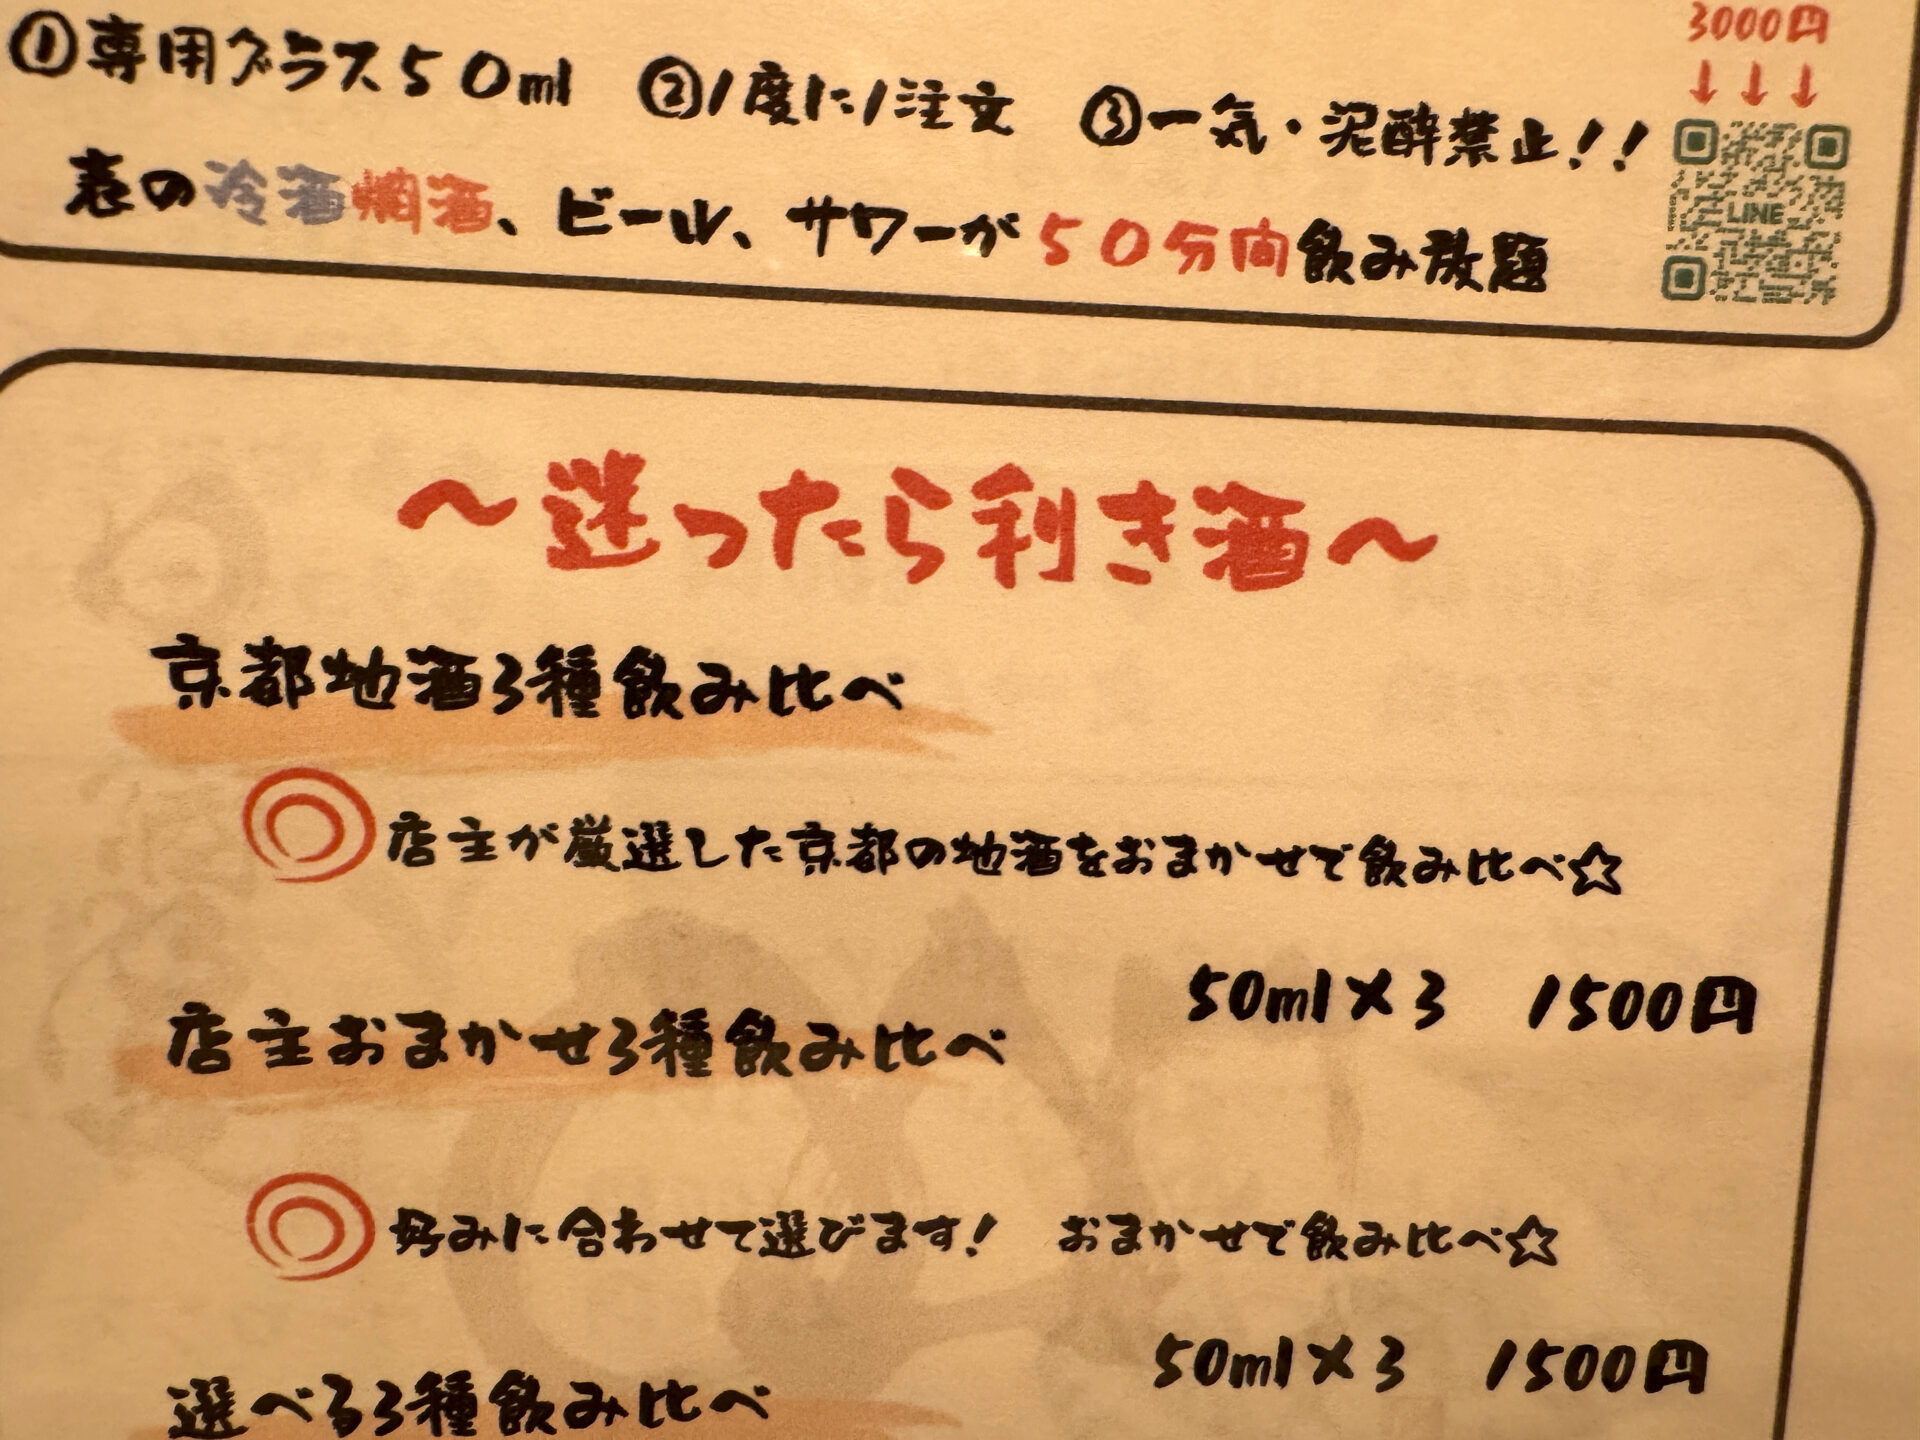 3000円
↓↓↓
①専用グラス50ml ②1度に1注文 ③一気・泥酔禁止!!
表の冷酒燗酒、ビール、サワーが50分間飲み放題
LINE
～迷ったら利き酒～
京都地酒3種飲み比べ
店主が厳選した京都の地酒をおまかせで飲み比べ☆
50ml×3 1500円
店主おまかせ3種飲み比べ
好みに合わせて選びます! おまかせで飲み比べ☆
50ml×3 1500円
選べる3種飲み比べ